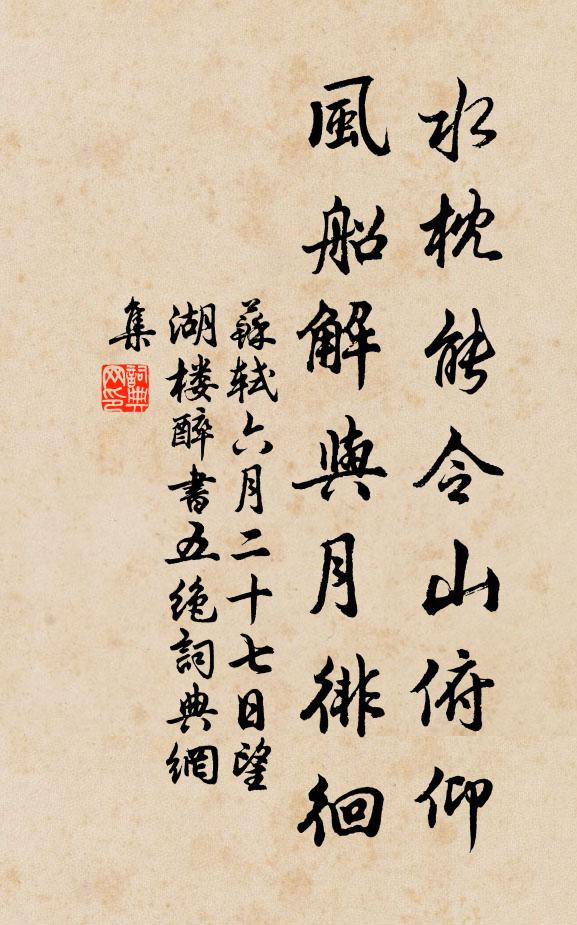 水枕能令山俯仰
風船解與月徘徊
蘇軾六月二十七日望
湖楼醉書五绝詞典網
集
詞典网印